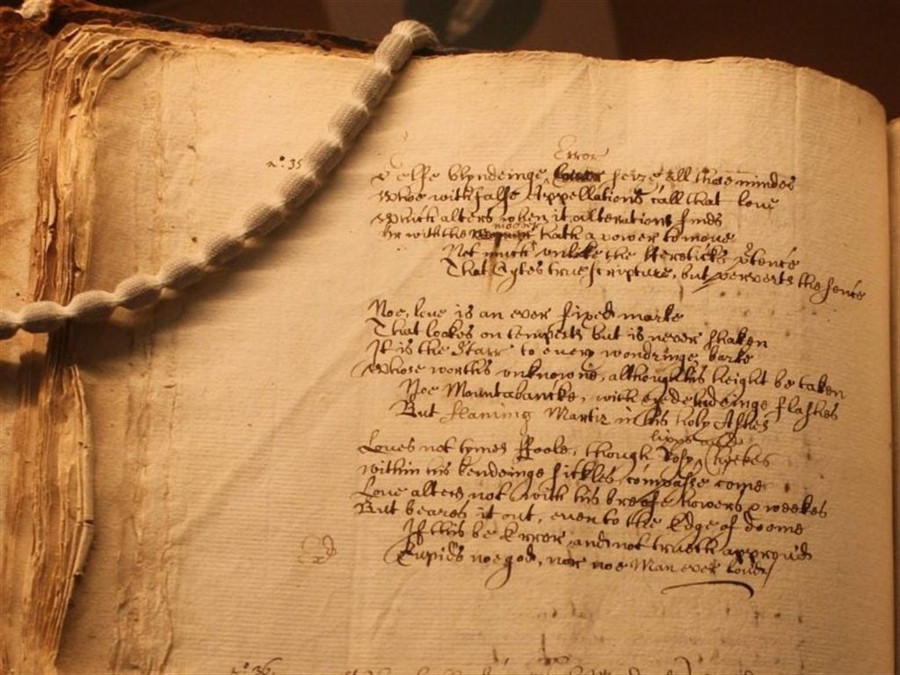 n°: 35
Error
Selfe blyndeinge seize all those mindes
Whoe with false Appellations call that love
Which alters when it alterations finds
moover
Or with the hath a power to move
Not much unlike the Hereticks ptence
That Cytes true scripture, but perverts the sence
Noe, love is an ever fixed marke
That lookes on tempests but is never shaken
It is the Starr to every wandringe barke
Whose worths unknowne, although his height be taken
Noe Mountabancke, with eye deludeinge flashes
But flaming Martir in his holy Ashes
lipps and
Loves not tymes ffoole, though Rosy Cheekes
within his bendeinge sickles compasse come
Love alters not with his breife howers & weekes
But beares it out, even to the Edge of doome
If this be Error and not trueth approvd
Cupids noe god, nor noe Man ever lovd
n°: 36